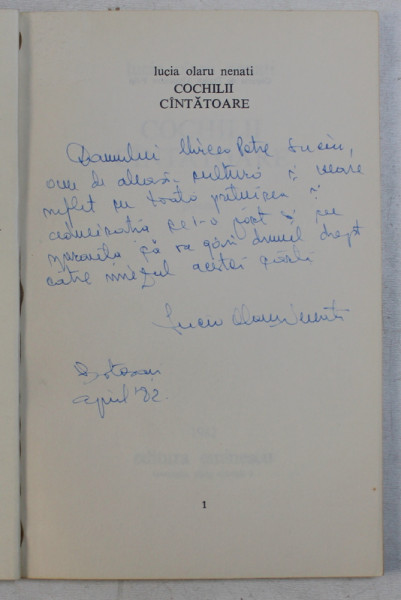 lucia olaru nenati
COCHILII
CÎNTĂTOARE
Domnului Mircea Petre Suciu,
om de aleasă cultură și mare
suflet cu toată prețuirea și
de și cu
speranța că va găsi drumul drept
către miezul acestei cărți
Lucia Olaru Nenati
Botoșani
april '82.
1